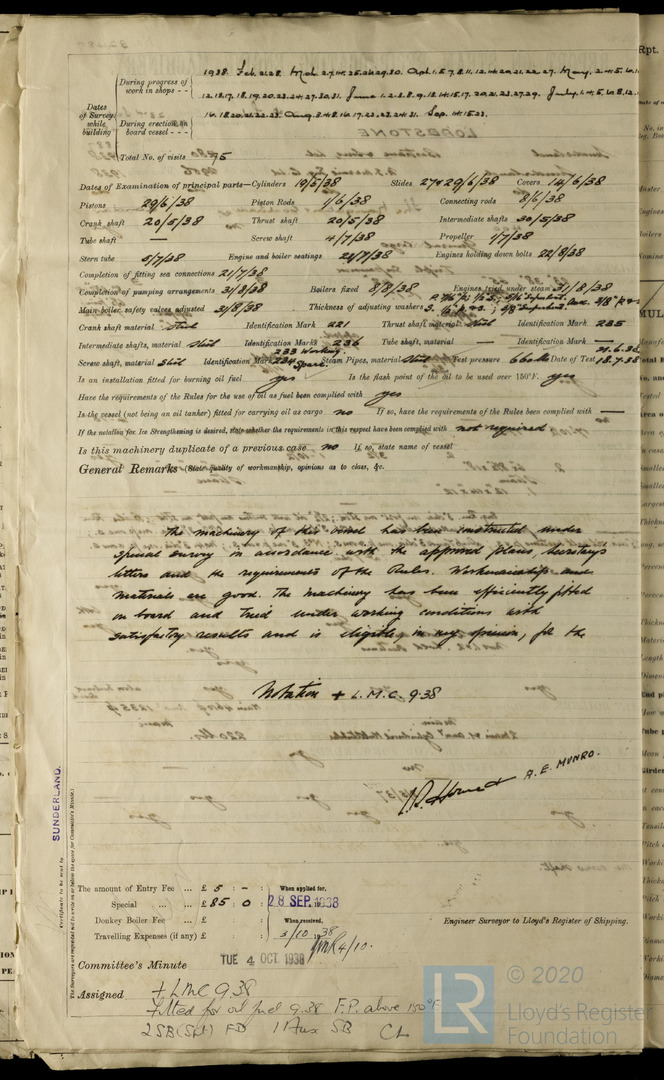 Dates of Survey while building
During progress of work in shops - -
1938 Feb. 21. 28. Mch. 2.7.14.25.26.29.30. Apl. 1.5.7.8.11.12.14.20.21.22.27. May. 2.4.5.
12.13.17.18.19.20.23.24.27.30.31. June 1.2.3.8.9.13.14.15.17.20.21.23.27.29. July. 1.4.5.6.8.12.
During erection on board vessel - - -
18.20.21.22.23. Aug. 3.4.8.16.17.22.23.24.31. Sep. 14.15.23.
Total No. of visits 75
Dates of Examination of principal parts—Cylinders 19/5/38 Slides 27 & 29/6/38 Covers 14/6/38
Pistons 29/6/38 Piston Rods 1/6/38 Connecting rods 8/6/38
Crank shaft 20/5/38 Thrust shaft 20/5/38 Intermediate shafts 30/5/38
Tube shaft — Screw shaft 4/7/38 Propeller 4/7/38
Stern tube 5/7/38 Engine and boiler seatings 26/7/38 Engines holding down bolts 22/8/38
Completion of fitting sea connections 21/7/38
Completion of pumping arrangements 31/8/38 Boilers fixed 8/8/38 Engines tried under steam 31/8/38
Main boiler safety valves adjusted 31/8/38 Thickness of adjusting washers
Crank shaft material Steel Identification Mark 221 Thrust shaft material Steel Identification Mark 235
Intermediate shafts, material Steel Identification Marks 236 Tube shaft, material — Identification Mark —
Screw shaft, material Steel Identification Mark 233 Working. 234 Spare. Steam Pipes, material Steel Test pressure 660 lbs Date of Test 21.6.38 18.7.38
Is an installation fitted for burning oil fuel yes Is the flash point of the oil to be used over 150°F. yes
Have the requirements of the Rules for the use of oil as fuel been complied with yes
Is the vessel (not being an oil tanker) fitted for carrying oil as cargo no If so, have the requirements of the Rules been complied with —
If the notation for Ice Strengthening is desired, state whether the requirements in this respect have been complied with not required
Is this machinery duplicate of a previous case no If so, state name of vessel
General Remarks (State quality of workmanship, opinions as to class, &c.
The machinery of this vessel has been constructed under
special survey in accordance with the approved plans, Secretary's
letters and the requirements of the Rules. Workmanship and
materials are good. The machinery has been efficiently fitted
on board and tried under working conditions with
satisfactory results and is eligible, in my opinion, for the
Notation + L.M.C. 9.38
A. E. MUNRO.
SUNDERLAND.
Certificate to be sent to
(The Surveyors are requested not to write on or below the space for Committee's Minute.)
The amount of Entry Fee ... £ 5 : - : When applied for,
Special ... ... £ 85 : 0 : 28 SEP. 1938
Donkey Boiler Fee ... £ : : When received,
Travelling Expenses (if any) £ : : 3/10 1938
4/10.
Engineer Surveyor to Lloyd's Register of Shipping.
Committee's Minute TUE 4 OCT 1938
Assigned + LMC 9.38
Fitted for oil fuel 9.38 F.P. above 150°F.
2SB(Spt) FD 1 Aux SB CL
LR
© 2020
Lloyd's Register
Foundation